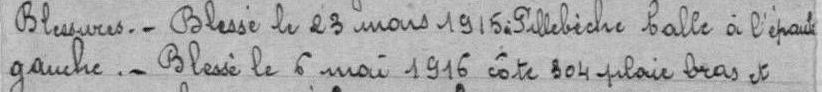 Blessures. - Blessé le 23 mars 1915 à Pillebèche balle à l'épaule
gauche. - Blessé le 6 mai 1916 côte 304 plaie bras et